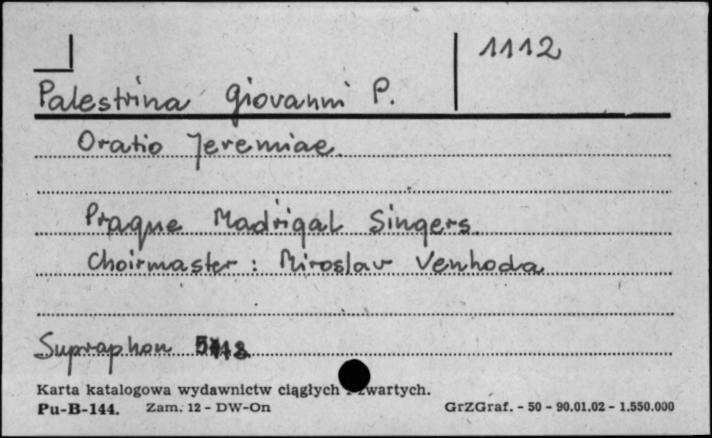 1112
Palestrina Giovanni P.
Oratio Jeremiae
Prague Madrigal Singers
Choirmaster: Miroslav Venhoda
Supraphon
Karta katalogowa wydawnictw ciągłych i zwartych.
Pu-B-144. Zam. 12 - DW-On GrZGraf. - 50 - 90.01.02 - 1.550.000